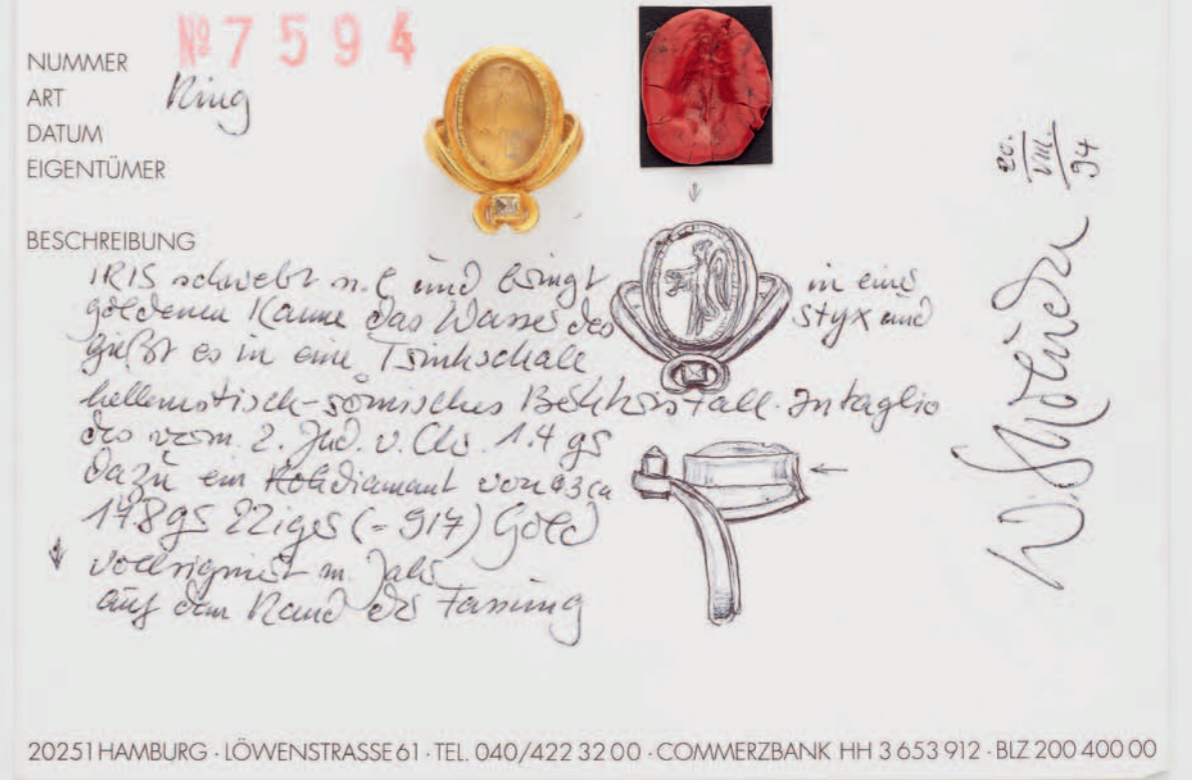 NUMMER № 7594
ART Ring
DATUM
EIGENTÜMER
BESCHREIBUNG
IRIS schwebt n. l und bringt in einer
goldenen Kanne das Wasser des Styx und
gießt es in eine Trinkschale
hellenistisch-römisches Bergkristall-Intaglio
des vorm. 2. Jhd. v. Chr. 1.4 gr
Dazu ein Rohdiamant von
17.8 gr 22iges (= 917) Gold
vollsigniert m. Jahr
auf dem Rand der Fassung
20.
VIII.
94
20251 HAMBURG · LÖWENSTRASSE 61 · TEL. 040/422 32 00 · COMMERZBANK HH 3 653 912 · BLZ 200 400 00